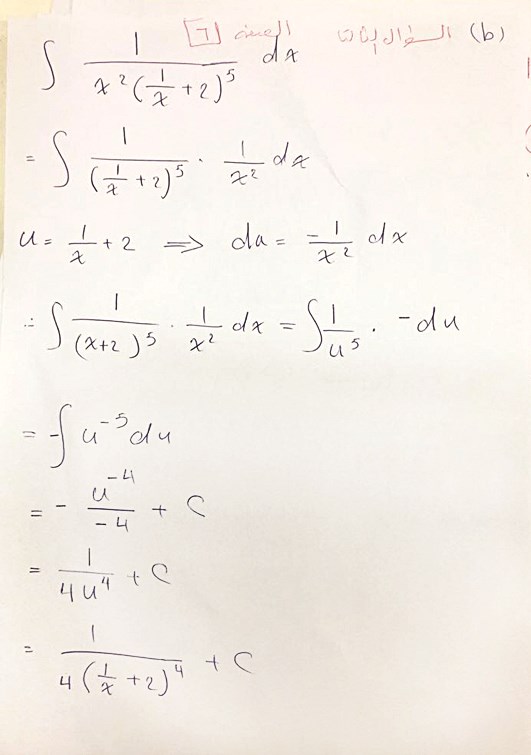 (b) السؤال الثالث العينة [6]
∫ 1/(x²(1/x + 2)⁵) dx
= ∫ 1/(1/x + 2)⁵ · 1/x² dx
u = 1/x + 2 ⇒ du = -1/x² dx
∴ ∫ 1/(x+2)⁵ · 1/x² dx = ∫ 1/u⁵ · -du
= -∫ u⁻⁵ du
= - u⁻⁴/-4 + C
= 1/(4u⁴) + C
= 1/(4(1/x + 2)⁴) + C